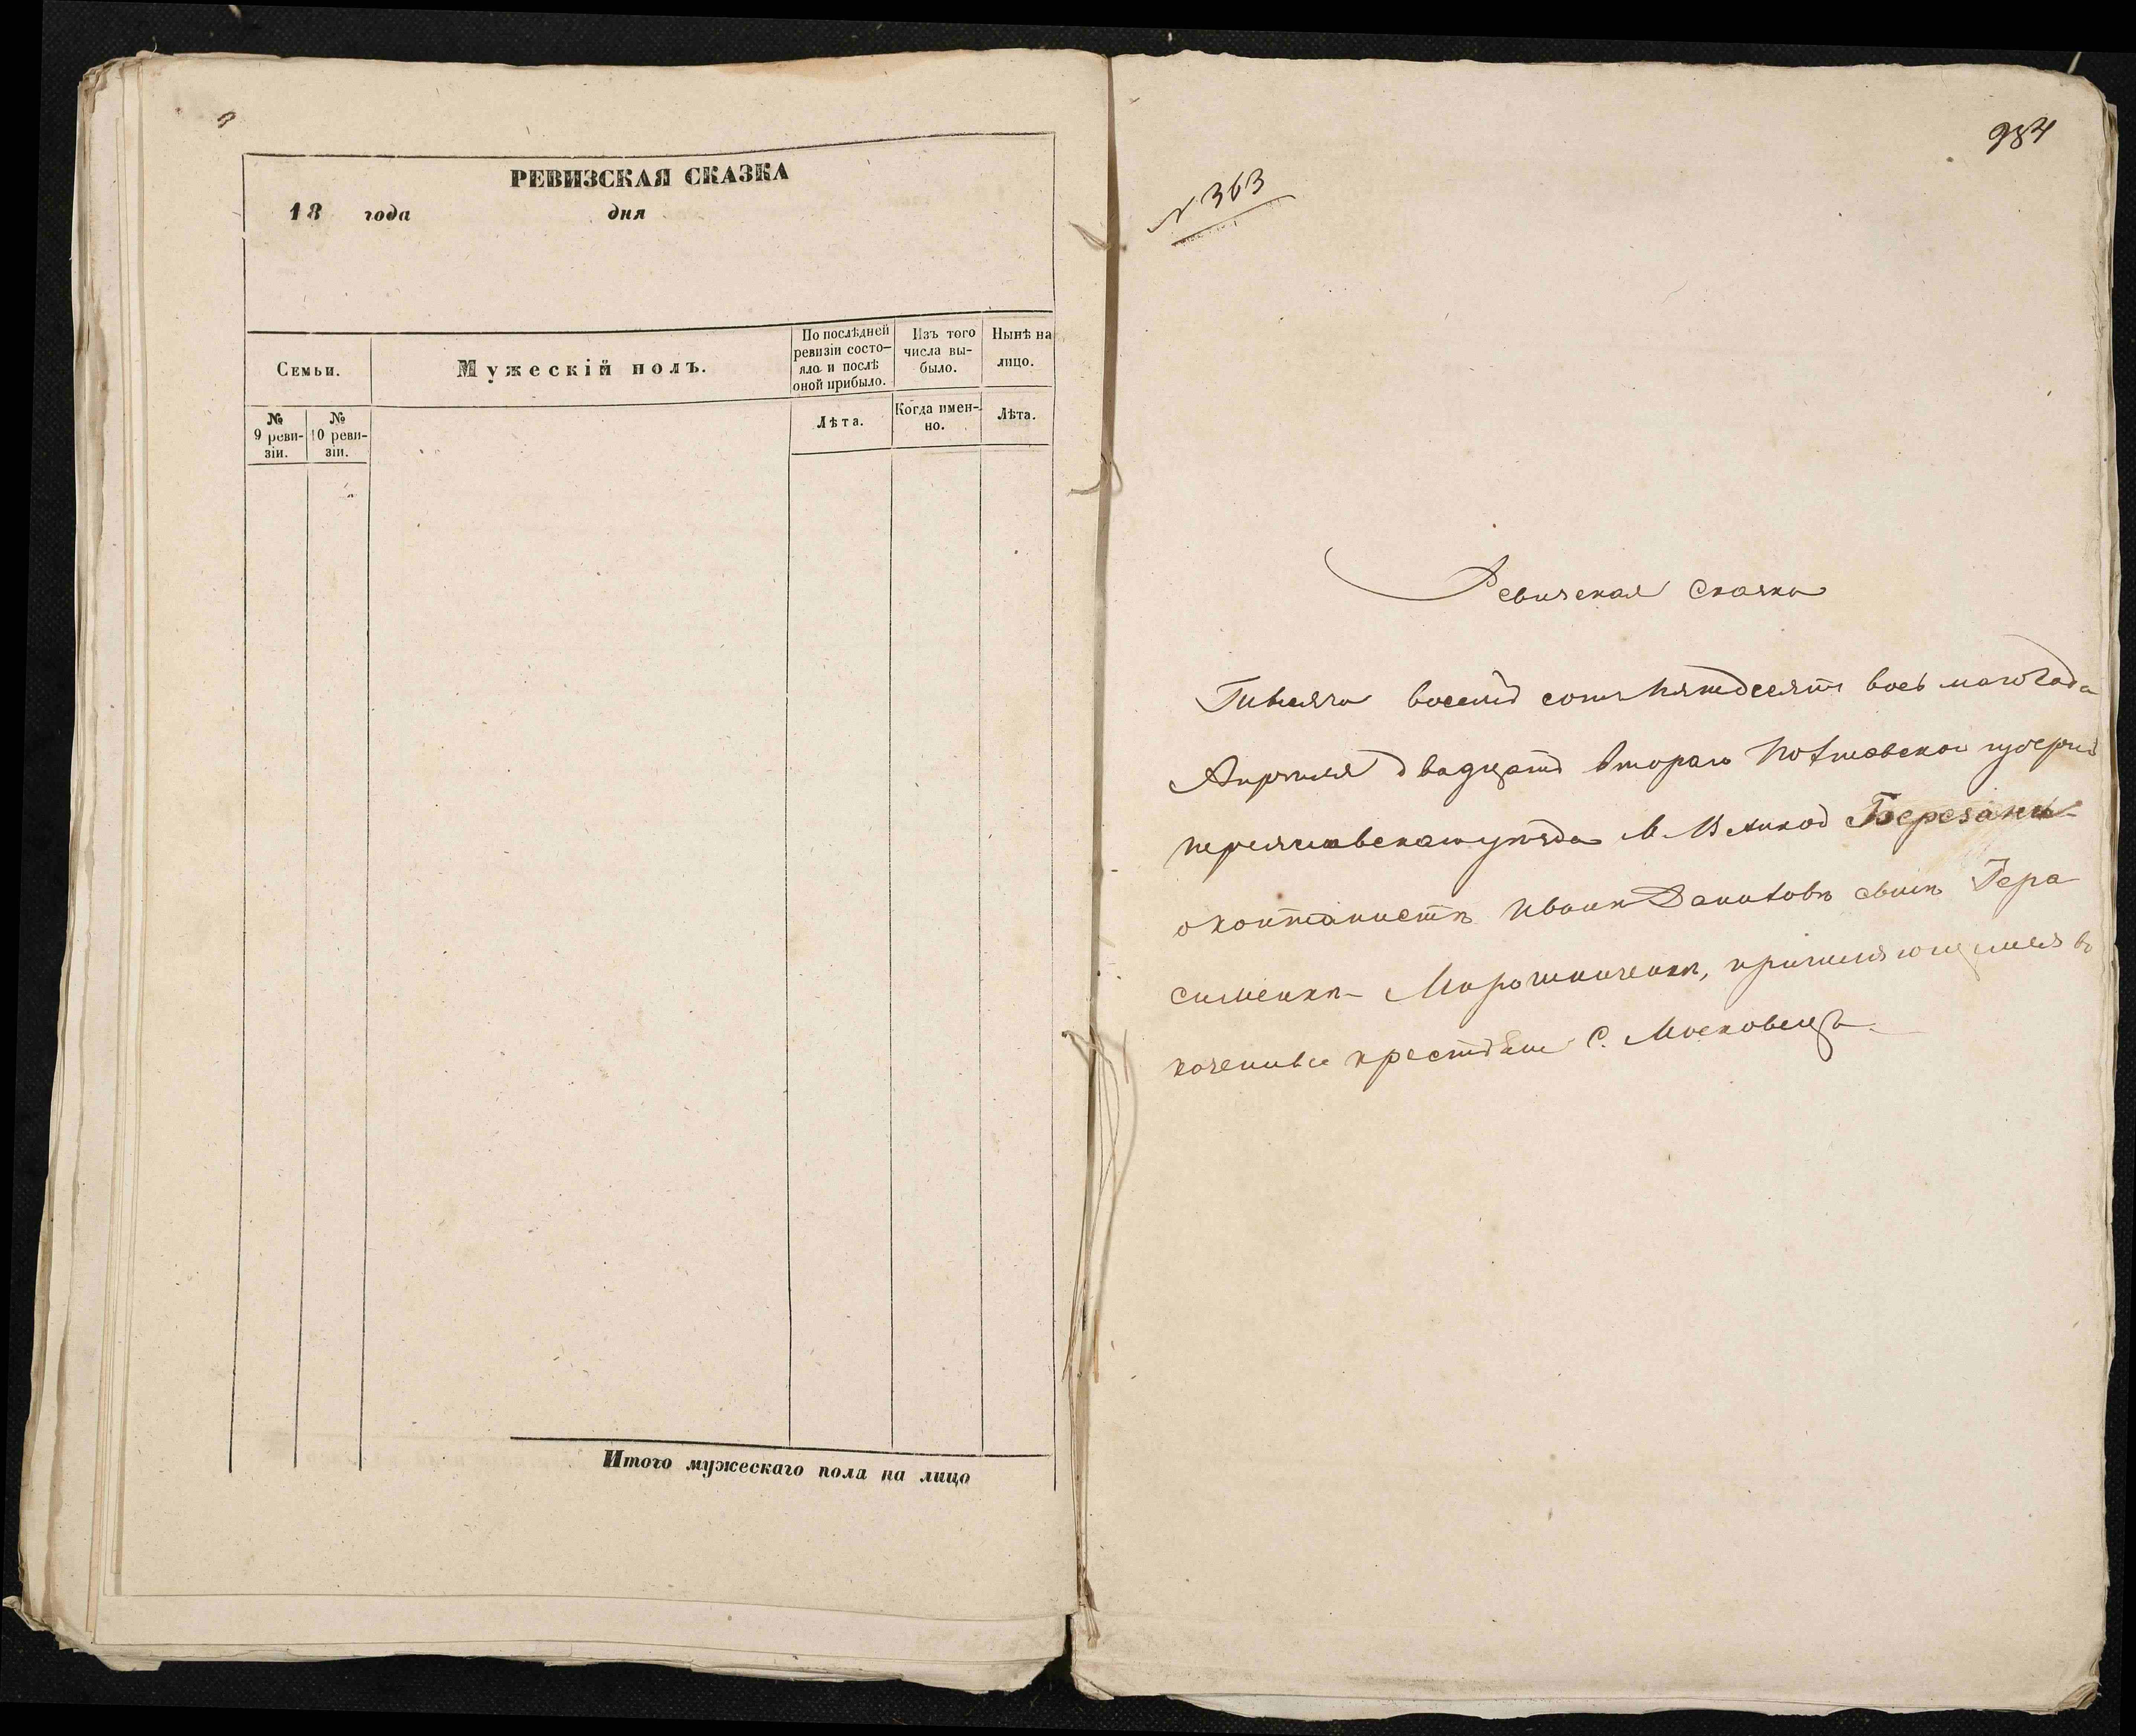 РЕВИЗСКАЯ СКАЗКА
18 года дня
Семьи.
Мужескій полъ.
По послѣдней
ревизіи состо-
яло и послѣ
оной прибыло.
Изъ того
числа вы-
было.
Нынѣ на
лицо.
№
9 реви-
зіи.
№
10 реви-
зіи.
Лѣта.
Когда имен-
но.
Лѣта.
Итого мужескаго пола на лицо
984
№ 363
Ревизская Сказка
Тысяча восемь сотъ пятдесятъ восьмаго Года
Апрѣля двадцать втораго Полтавской губерніи
переяславскаго уѣзда М. Великой Березани
Иванъ Даниловъ сынъ Гера
сименка Мирошниченка,
С. Московецъ